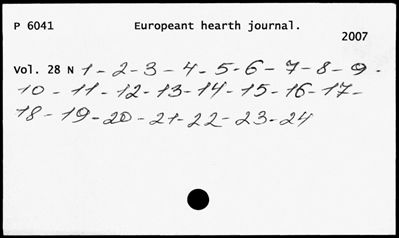 P 6041 Europeant hearth journal.
2007
Vol. 28 N 1 - 2 - 3 - 4 - 5 - 6 - 7 - 8 - 9 -
10 - 11 - 12 - 13 - 14 - 15 - 16 - 17 -
18 - 19 - 20 - 21 - 22 - 23 - 24